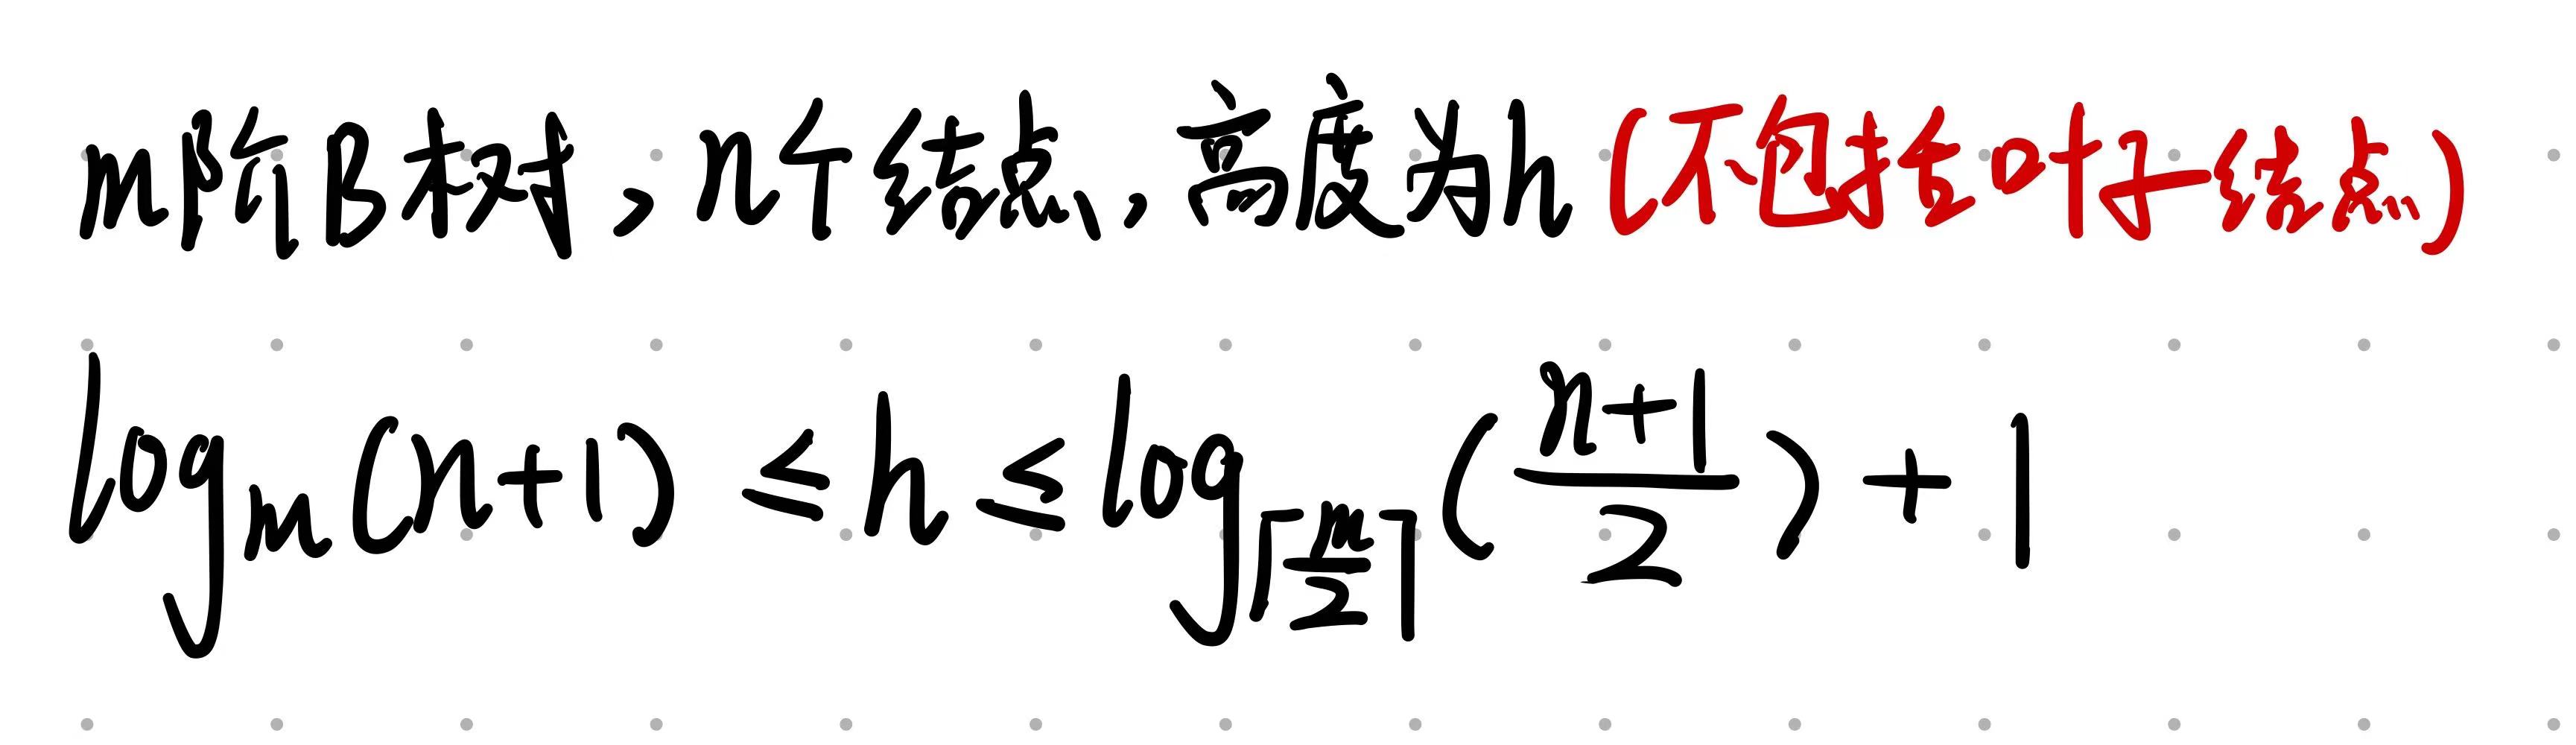 m阶B树，n个结点，高度为h（不包括叶子结点）
log_m(n+1) ≤ h ≤ log_⌈m/2⌉((n+1)/2) + 1